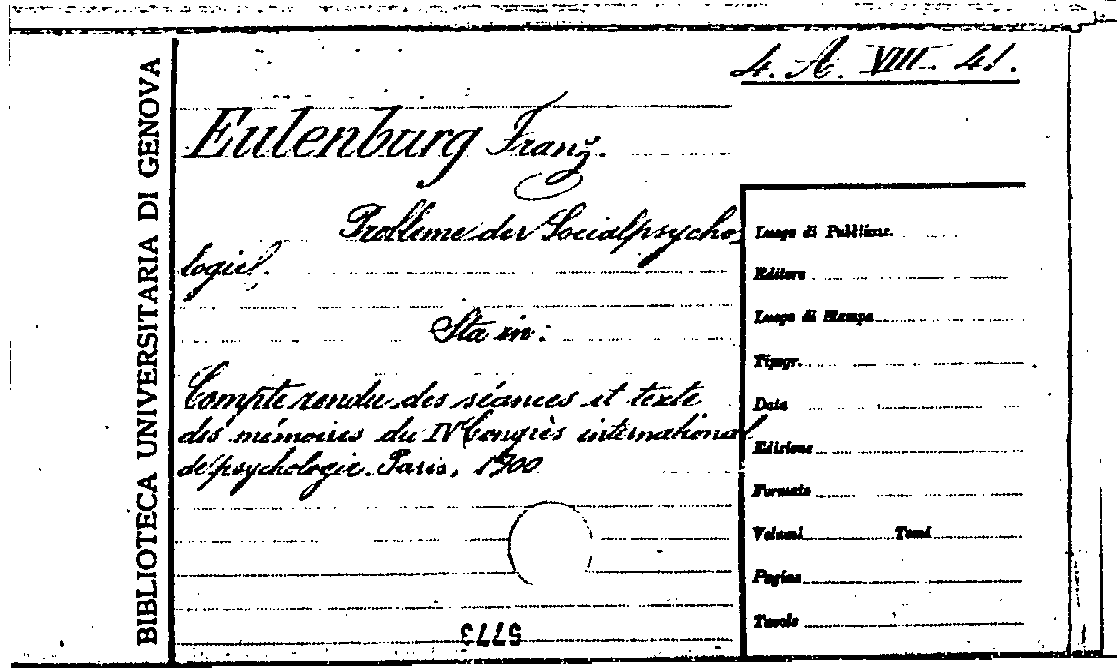 BIBLIOTECA UNIVERSITARIA DI GENOVA
4. A. VIII. 41.
Eulenburg Franz.
Probleme der Socialpsycho-
logie.
Sta in:
Compte rendu des séances et texte
des mémoires du IV Congrès international
de psychologie. Paris, 1900
Luogo di Pubblicaz.
Editore
Luogo di Stampa
Tipogr.
Data
Edizione
Formato
Volumi Tomi
Pagine
Tavole
5773